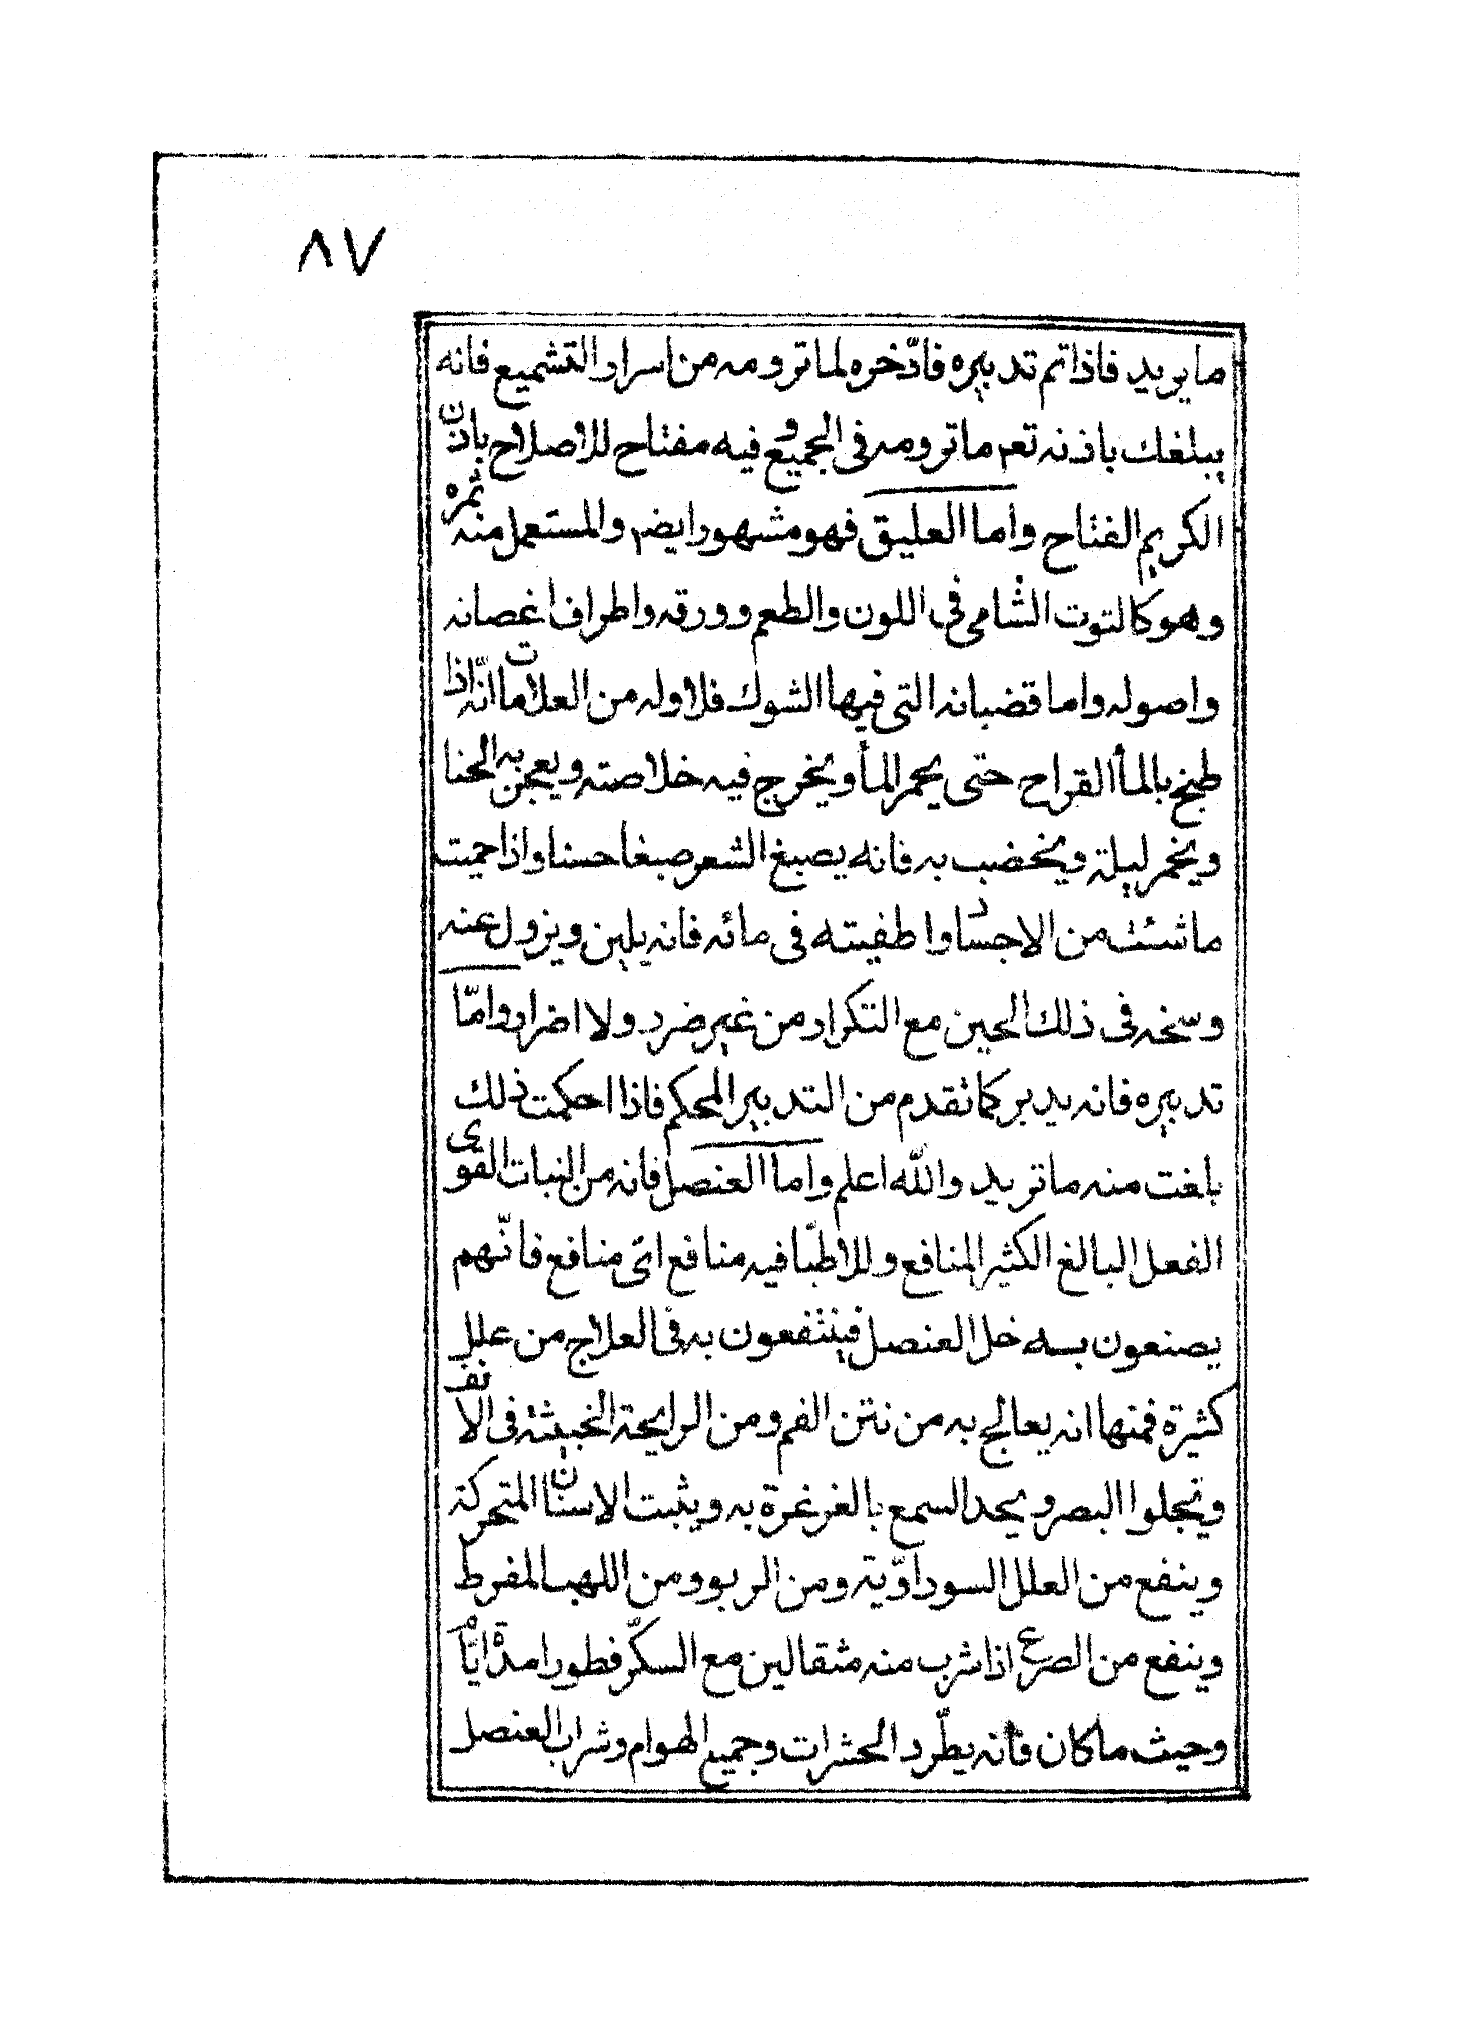 ٨٧
ما يريد فاذا تم تدبيره فادّخره لما ترومه من اسرار التشميع فانه
يبلغك باذنه تعم ما ترومه فى الجميع وفيه مفتاح للاصلاح باذن
الكريم الفتاح واما العليق فهو مشهور ايضم والمستعمل منه ثمره
وهو كالتوت الشامى فى اللون والطعم وورقه واطراف اغصانه
واصوله واما قضبانه التى فيها الشوك فلاوله من العلامات انّه اذا
طبخ بالمأ القراح حتى يحمر المأ ويخرج فيه خلاصته ويعجن به الحنا
ويخمر ليلة ويخضب به فانه يصبغ الشعر صبغا حسنا واذا حميت
ما شئت من الاجساد واطفيته فى مائه فانه يلين ويزول عنه
وسخه فى ذلك الحين مع التكرار من غير ضرر ولا اضرار وامّا
تدبيره فانه يدبر كما تقدم من التدبير المحكم فاذا احكمت ذلك
بلغت منه ما تريد والله اعلم واما العنصل فانه من النبات القوى
الفعل البالغ الكثير المنافع وللاطبّا فيه منافع اىّ منافع فانّهم
يصنعون به خل العنصل فينتفعون به فى العلاج من علل
كثيرة فمنها انه يعالج به من نتن الفم ومن الرايحة الخبيثة فى الانف
وتجلوا البصر ويحد السمع بالغرغرة به ويثبت الاسنان المتحركة
وينفع من العلل السوداوّية ومن الربو ومن اللهب المفرط
وينفع من الصرع اذا شرب منه مثقالين مع السكّر فطورا مدة ايّام
وحيث ما كان فأنه يطّرد الحشرات وجميع الهوام وشراب العنصل